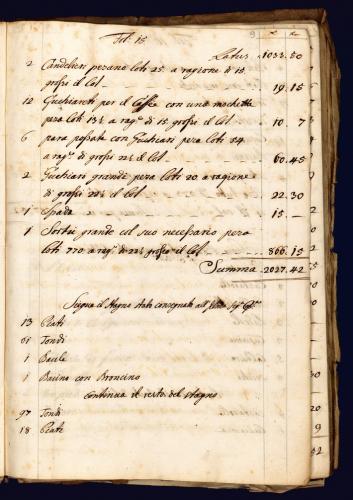 Fol: 15
Latus 1033.50
2 Candelieri pezano loti 25 a ragione di 15
grossi il Lot 19.15
12 Guchiareti per il Caffe con una
pera Loti 13½ a rag.e di 15 grossi il Lot 10.7
6 para possate con Guchiari pera Loti 54
a rag.e di grossi 22½ il Lot 60.45
2 Guchiari grandi pera Loti 20 a ragione
di grossi 22½ il Lot 22.30
1 Spada 15 —
1 Sortù grande col suo necessario pera
loti 770 a rag.e di 22½ grossi il Lot 866.15
Summa 2027.42
Segue il Stagno stato consegnato all
13 Piati
61 Tondi
1 Baule
1 Bacino con Broncino
continua il resto del stagno
97 Tondi
18 Piati